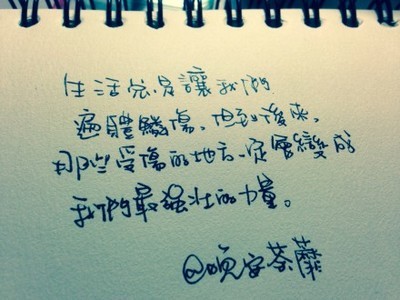 生活总是讓我們
遍體鱗傷,但到後來,
那些受傷的地方一定會變成
我們最强壮的力量。
@晚安荼蘼